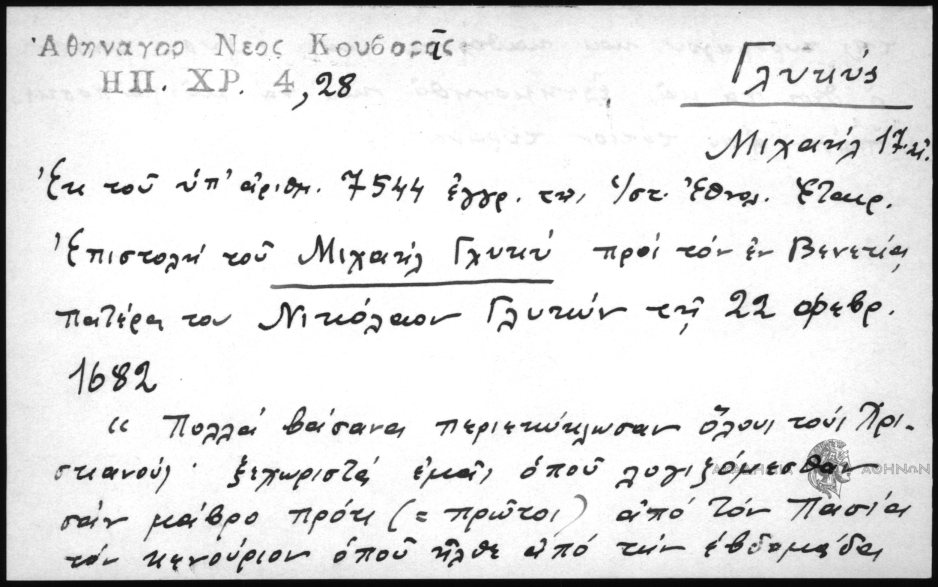 Ἀθηναγορ Νεος Κουβαρᾶς
ΗΠ. ΧΡ. 4,28
Γλυκύς
Μιχαήλ 17 αἰ.
Ἐκ τοῦ ὑπ' ἀριθμ. 7544 ἐγγρ. τῆς Ἱστ. Ἐθνολ. Ἑταιρ.
Ἐπιστολή τοῦ Μιχαήλ Γλυκύ πρός τόν ἐν Βενετίᾳ
πατέρα του Νικόλαον Γλυκύν τῇ 22 φεβρ.
1682
« Πολλά βάσανα περιεκύκλωσαν ὅλους τούς Χρι-
στιανούς · ξεχωριστά ἐμᾶς ὁποῦ λογιζόμεσθαν
σάν μαῦρο πρότι (= πρῶτοι) ἀπό τόν Πασιά
τόν κενούριον ὁποῦ ἦλθε ἀπό τήν ἑβδομάδα
ΑΘΗΝΩΝ